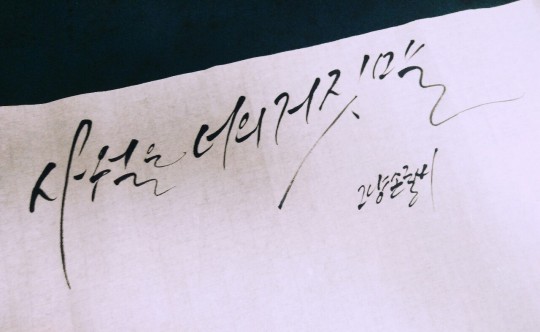 사월은 너의 거짓말
그냥손글씨